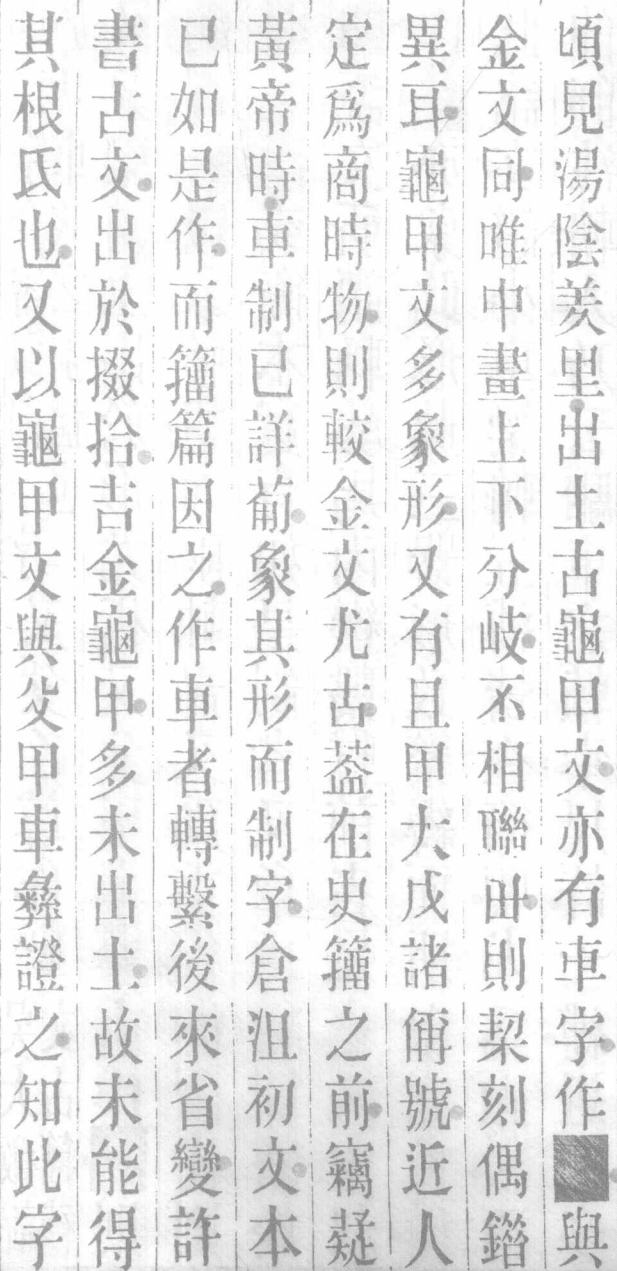 頃見湯陰羑里出土古龜甲文亦有車字作與
金文同唯中畫上下分岐不相聯毌則栔刻偶錯
異耳龜甲文多象形又有且甲大戊諸偁號近人
定爲商時物則較金文尤古葢在史籀之前竊疑
黃帝時車制已詳葡象其形而制字倉沮初文本
已如是作而籀篇因之作車者轉繫後來省變許
書古文出於掇拾吉金龜甲多未出土故未能得
其根氐也又以龜甲文與父甲車彝證之知此字